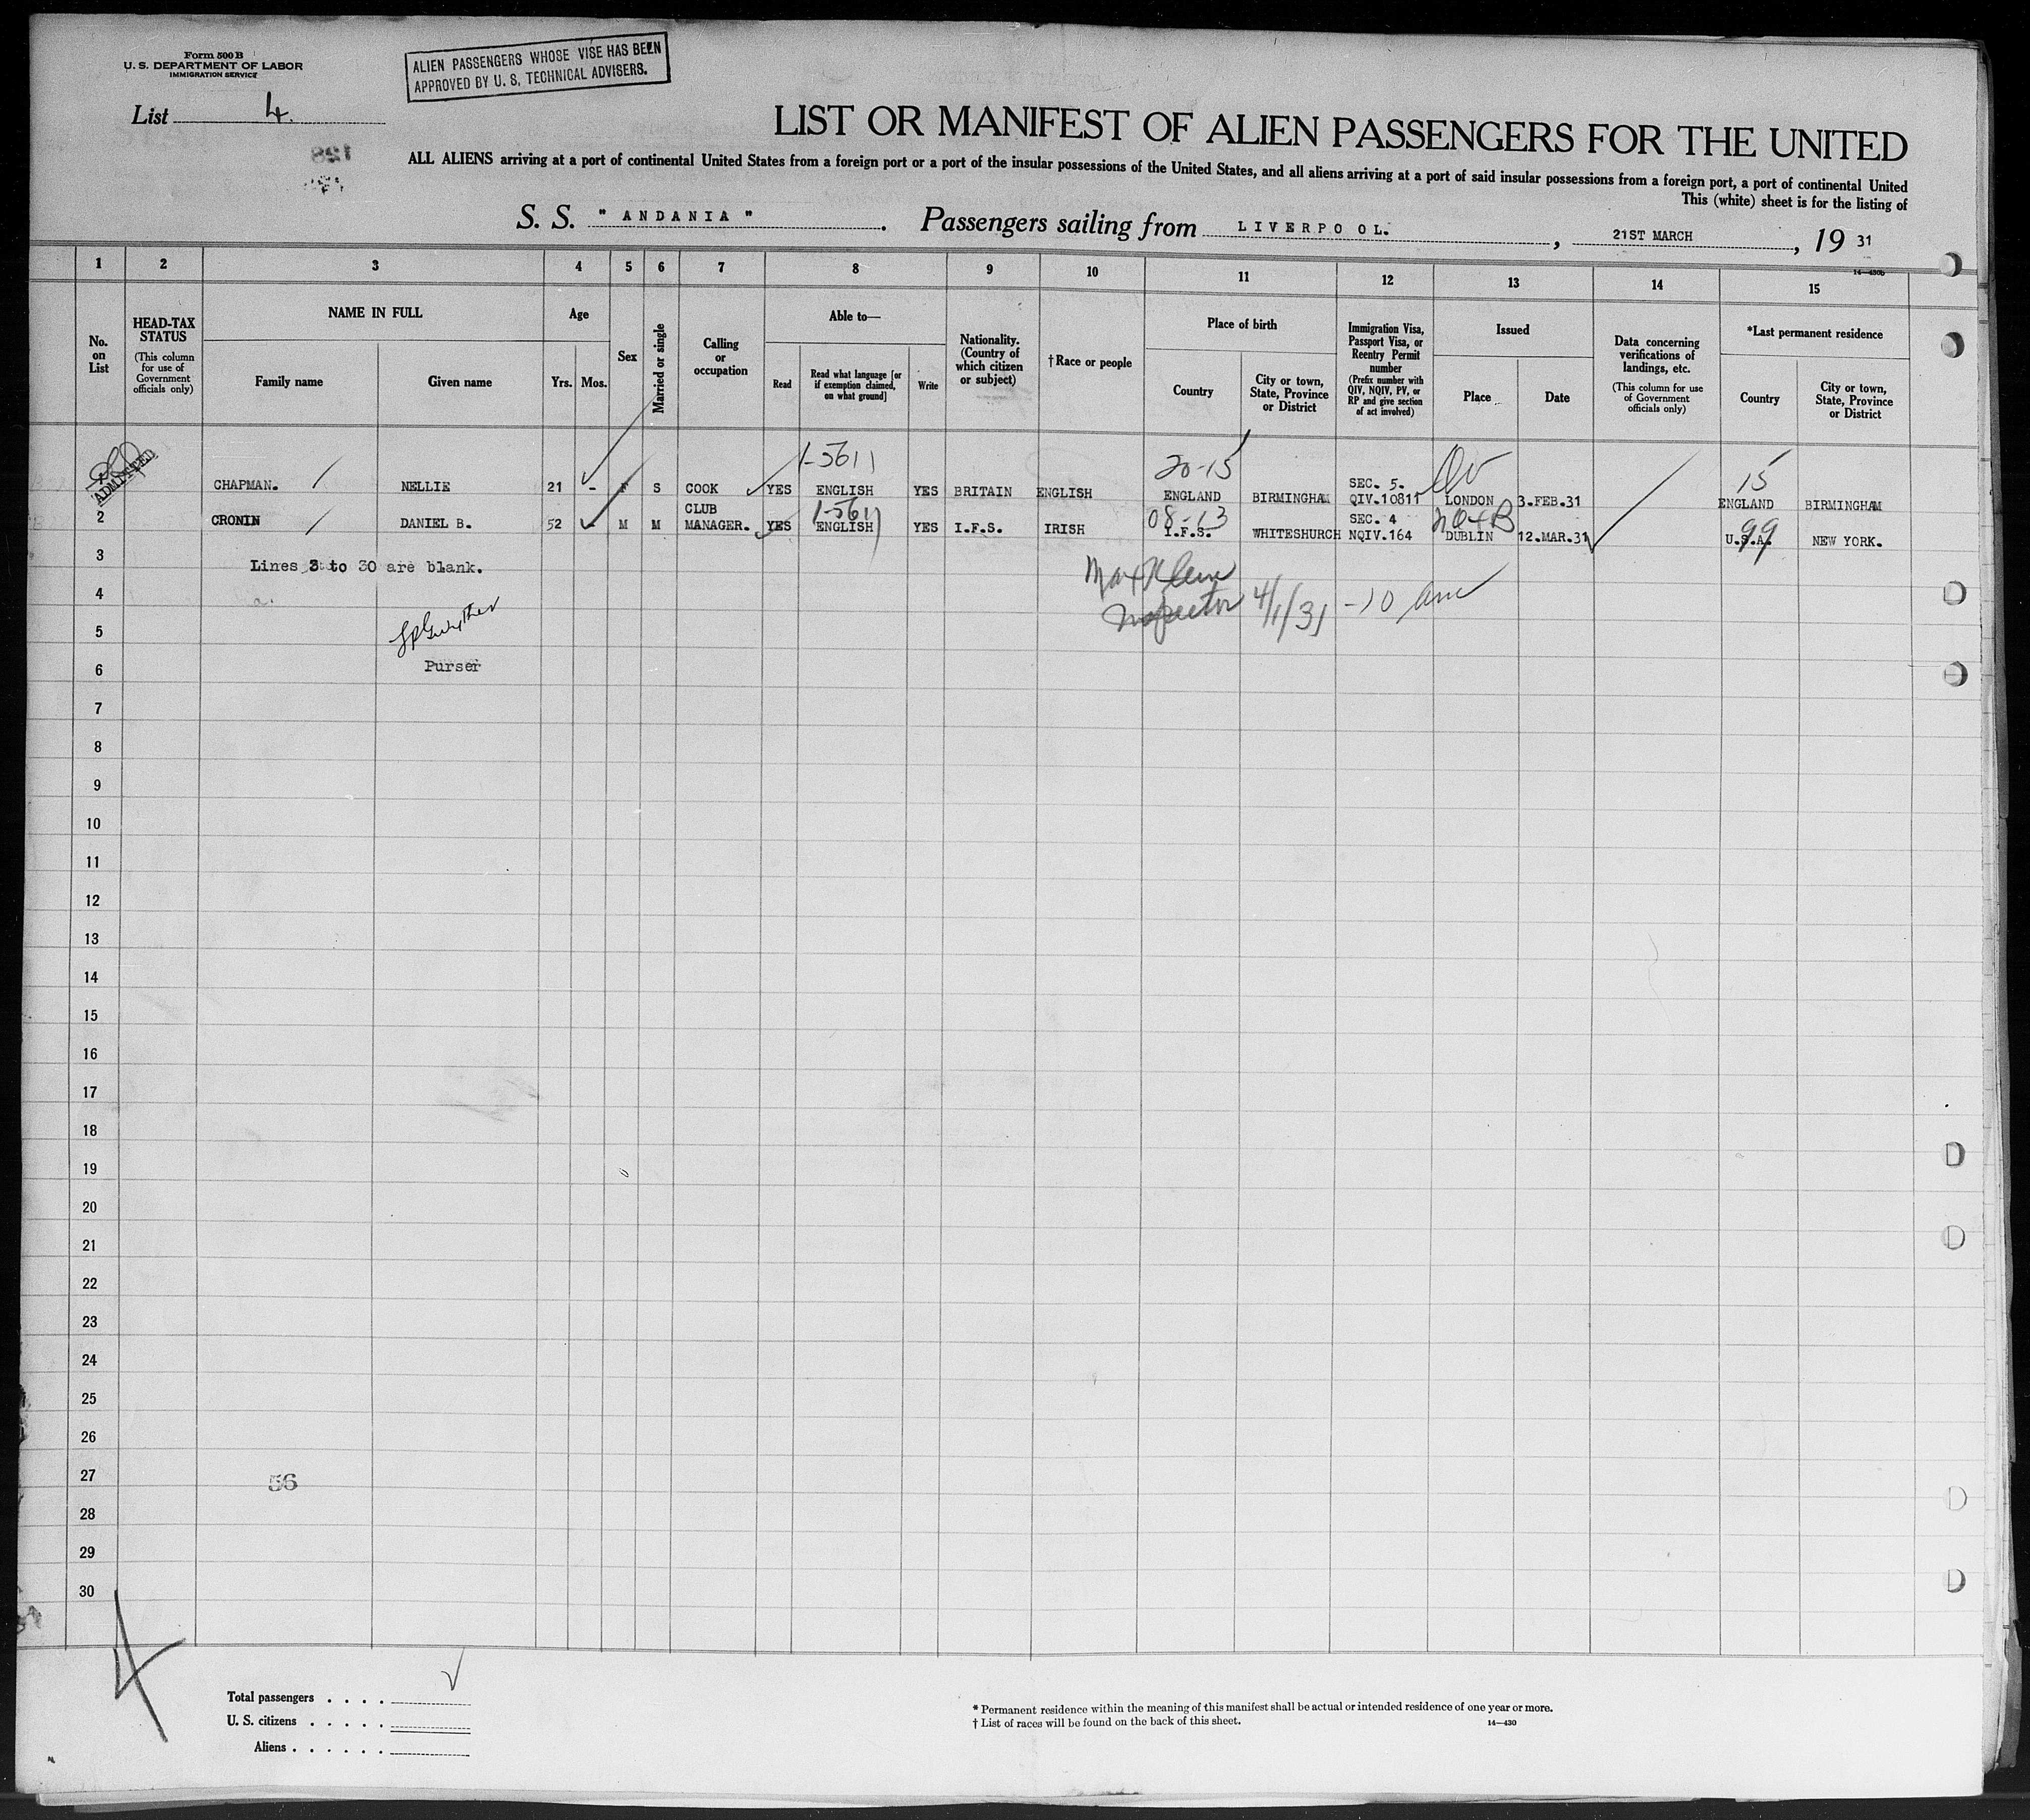 Form 500 B
U. S. DEPARTMENT OF LABOR
IMMIGRATION SERVICE
ALIEN PASSENGERS WHOSE VISE HAS BEEN
APPROVED BY U. S. TECHNICAL ADVISERS.
List 4.
128
LIST OR MANIFEST OF ALIEN PASSENGERS FOR THE UNITED
ALL ALIENS arriving at a port of continental United States from a foreign port or a port of the insular possessions of the United States, and all aliens arriving at a port of said insular possessions from a foreign port, a port of continental United
This (white) sheet is for the listing of
S. S. "ANDANIA". Passengers sailing from LIVERPOOL., 21ST MARCH, 19 31
14—430b
1 2 3 4 5 6 7 8 9 10 11 12 13 14 15
No. on List
HEAD-TAX STATUS
(This column for use of Government officials only)
NAME IN FULL
Family name
Given name
Age
Yrs. Mos.
Sex
Married or single
Calling or occupation
Able to—
Read
Read what language [or if exemption claimed, on what ground]
Write
Nationality. (Country of which citizen or subject)
† Race or people
Place of birth
Country
City or town, State, Province or District
Immigration Visa, Passport Visa, or Reentry Permit number
(Prefix number with QIV, NQIV, PV, or RP and give section of act involved)
Issued
Place
Date
Data concerning verifications of landings, etc.
(This column for use of Government officials only)
*Last permanent residence
Country
City or town, State, Province or District
1-5611 20-15 QIV 15
ADMITTED CHAPMAN. NELLIE 21 - F S COOK YES ENGLISH YES BRITAIN ENGLISH ENGLAND BIRMINGHAM SEC. 5. QIV.10811 LONDON 3.FEB.31 ENGLAND BIRMINGHAM
1-5611 08-13 99
2 CRONIN DANIEL B. 52 - M M CLUB MANAGER. YES ENGLISH YES I.F.S. IRISH I.F.S. WHITESHURCH SEC. 4 NQIV.164 DUBLIN 12.MAR.31 U.S.A. NEW YORK.
3 Lines 3 to 30 are blank.
Max Klein
4 Inspector 4/1/31 - 10 am
5
6 Purser
7
8
9
10
11
12
13
14
15
16
17
18
19
20
21
22
23
24
25
26
27 56
28
29
30
4
Total passengers . . . .
U. S. citizens . . . . .
Aliens . . . . . .
* Permanent residence within the meaning of this manifest shall be actual or intended residence of one year or more.
† List of races will be found on the back of this sheet.
14—430